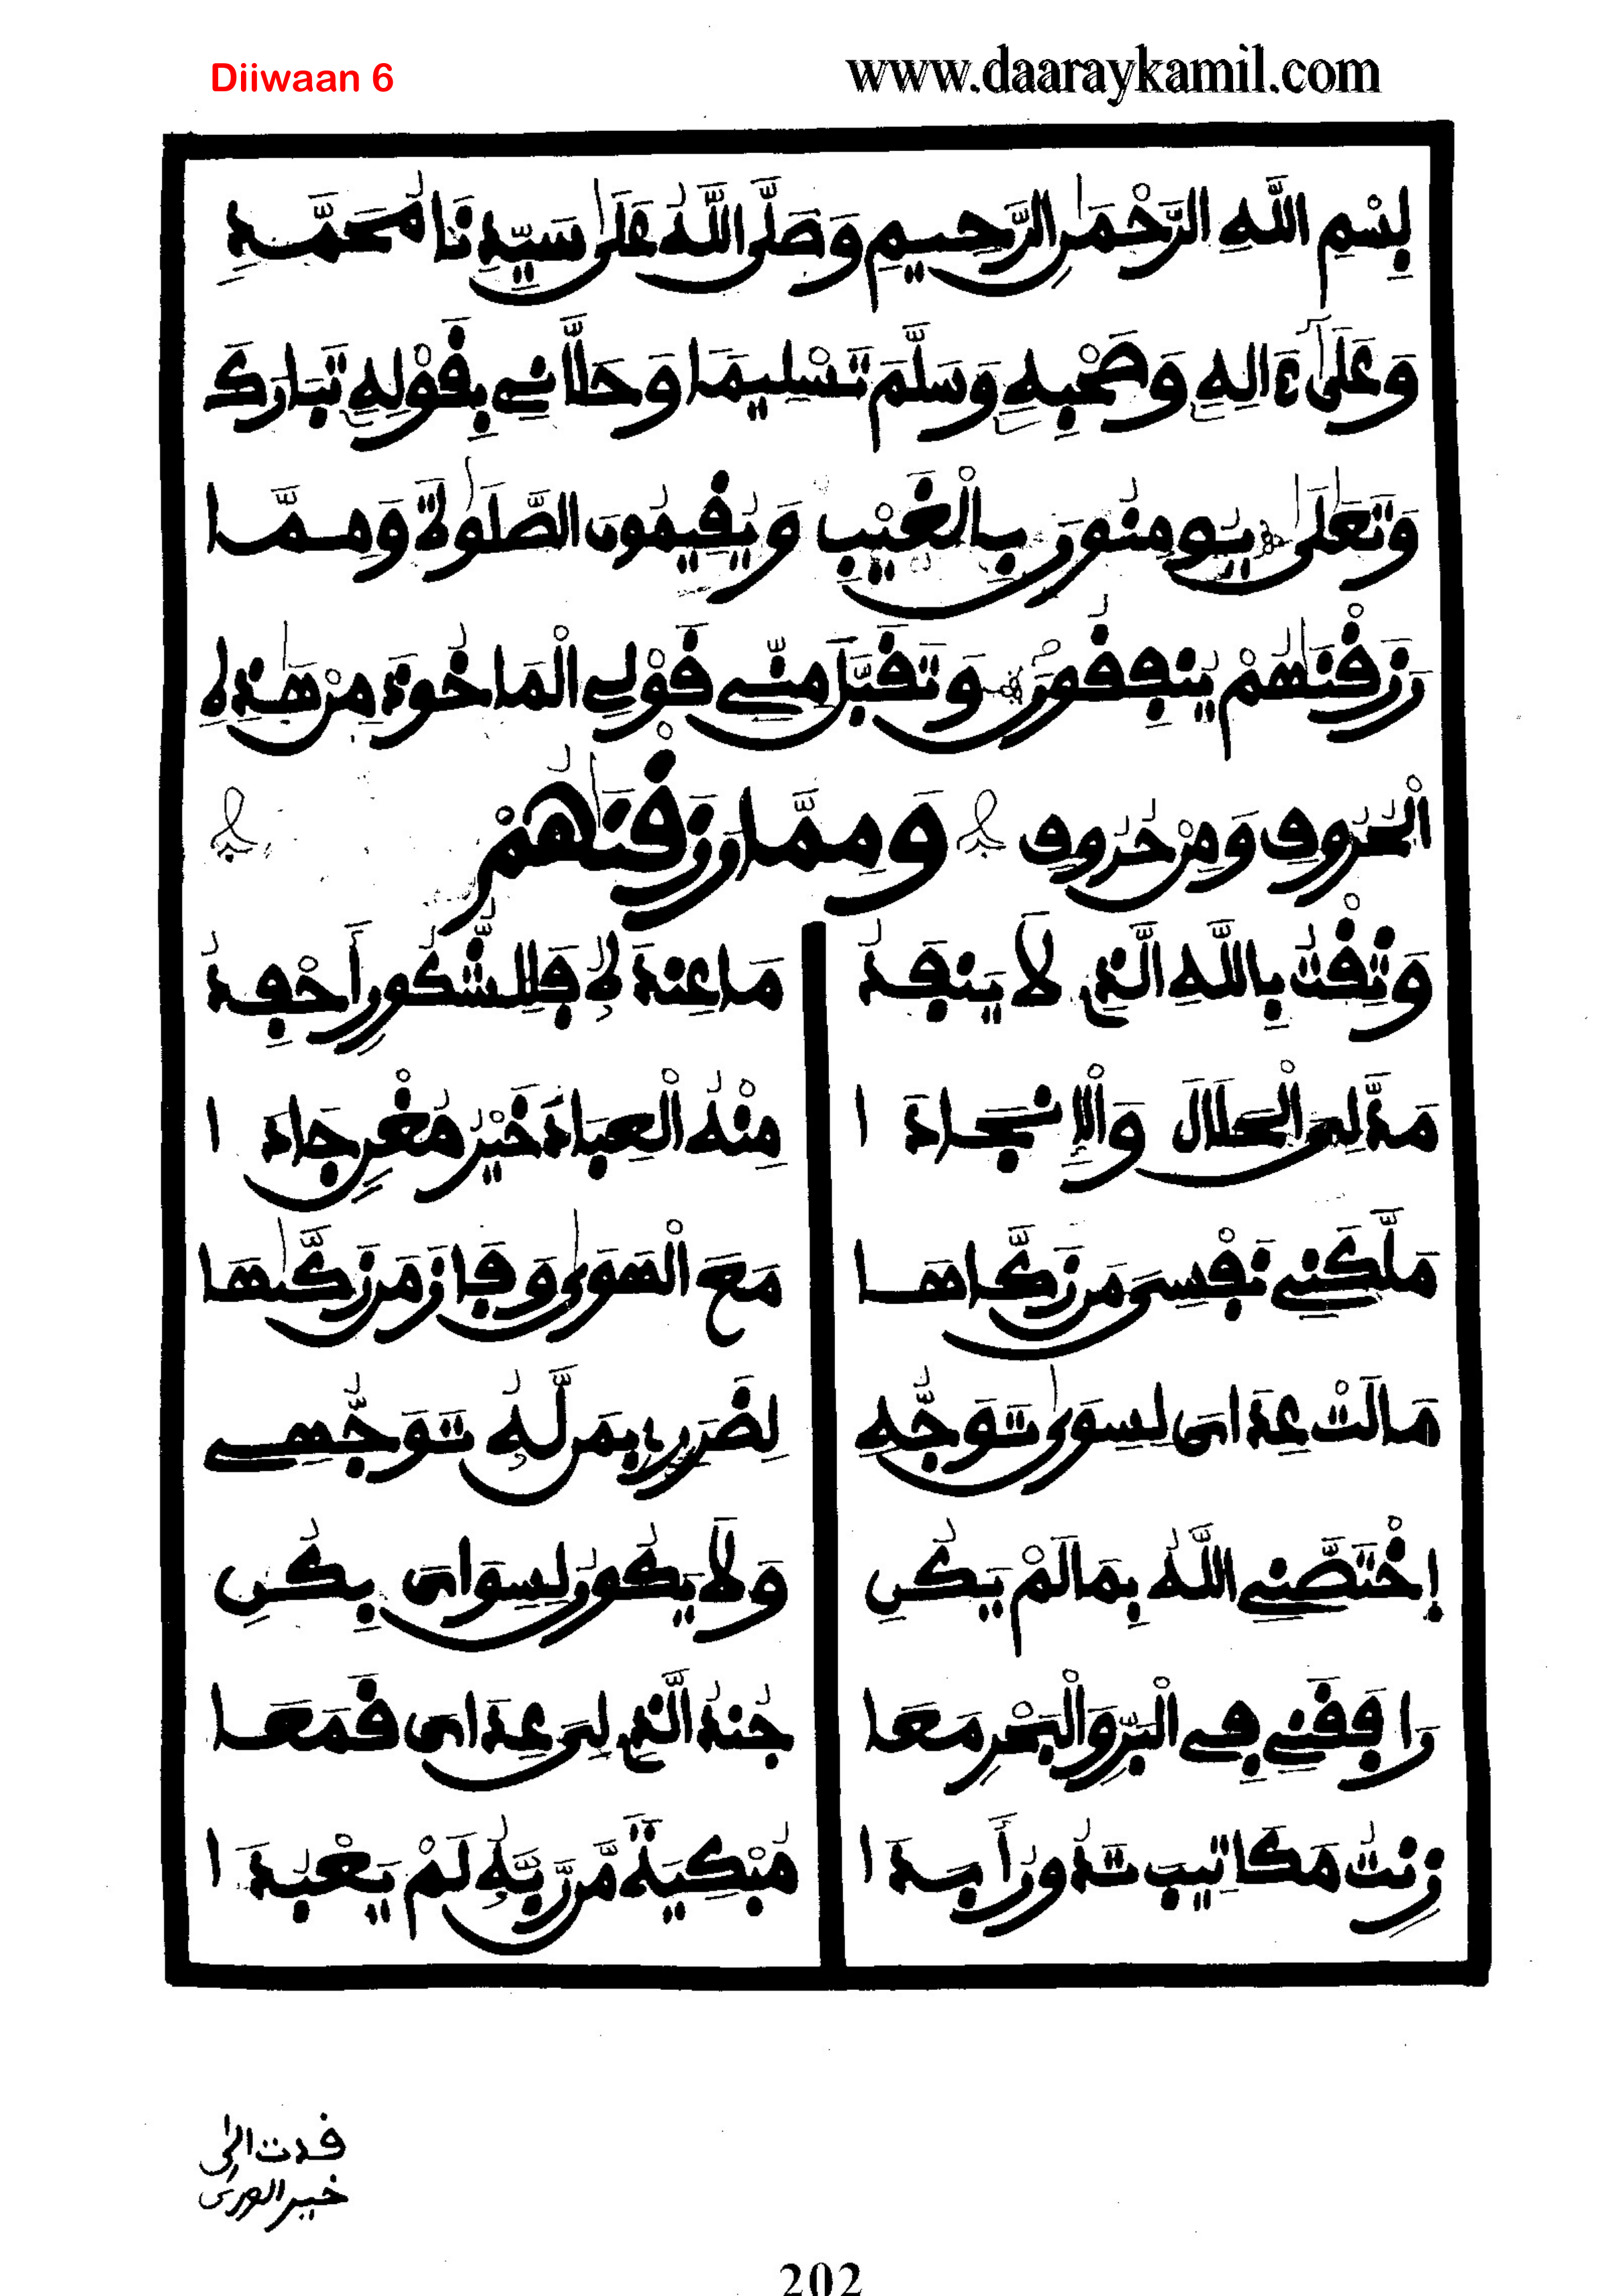 Diiwaan 6
www.daaraykamil.com
بِسْمِ اللَّهِ الرَّحْمَٰنِ الرَّحِيمِ وَصَلَّى اللَّهُ عَلَىٰ سَيِّدِنَا مُحَمَّدٍ
وَعَلَىٰ ءَالِهِ وَصَحْبِهِ وَسَلَّمَ تَسْلِيمًا وَحَلَّانِي بِقَوْلِهِ تَبَارَكَ
وَتَعَلَىٰ يُومِنُونَ بِالْغَيْبِ وَيُقِيمُونَ الصَّلَوٰةَ وَمِمَّا
رَزَقْنَٰهُمْ يُنفِقُونَ وَتَقَبَّلَ مِنِّي قَوْلِي الْمَاخُوذَ مِنْ هَٰذِهِ
الْحُرُوفِ وَمِنْ حُرُوفِ وَمِمَّا رَزَقْنَٰهُمْ
وَثِقْتُ بِاللَّهِ الَّذِي لَا يَنفَدُ مَا عِندَهُ فَلِلشَّكُورِ أَحْفِدُ
مَدَّ لِيَ الْحَلَالَ وَالْإِنجَادَا مِنْهُ الْعِبَادَ خَيْرُ مُغْرٍ جَادَا
مَلَّكَنِي نَفْسِيَ مَن زَكَّاهَا مَعَ الْهَوَىٰ وَفَازَ مَن زَكَّىٰهَا
مَالَتْ عِدَايَ لِسِوَىٰ تَوَجُّهِ لِضَرَرِي بِمَن لَّهُ تَوَجُّهِي
إِخْتَصَّنِي اللَّهُ بِمَا لَمْ يَكُنِ وَلَا يَكُونُ لِسِوَايَ بِكُنِ
رَافَقَنِي فِي الْبَرِّ وَالْبَحْرِ مَعَا جُندُ الَّذِي لِيَ عِدَايَ قَمَعَا
زِنتُ مَكَاتِيبَ تَدُورُ أَبَدَا مُبْكِيَةً مَّن رَّبَّهُ لَمْ يَعْبُدَا
قدت الى
خير الورى
202